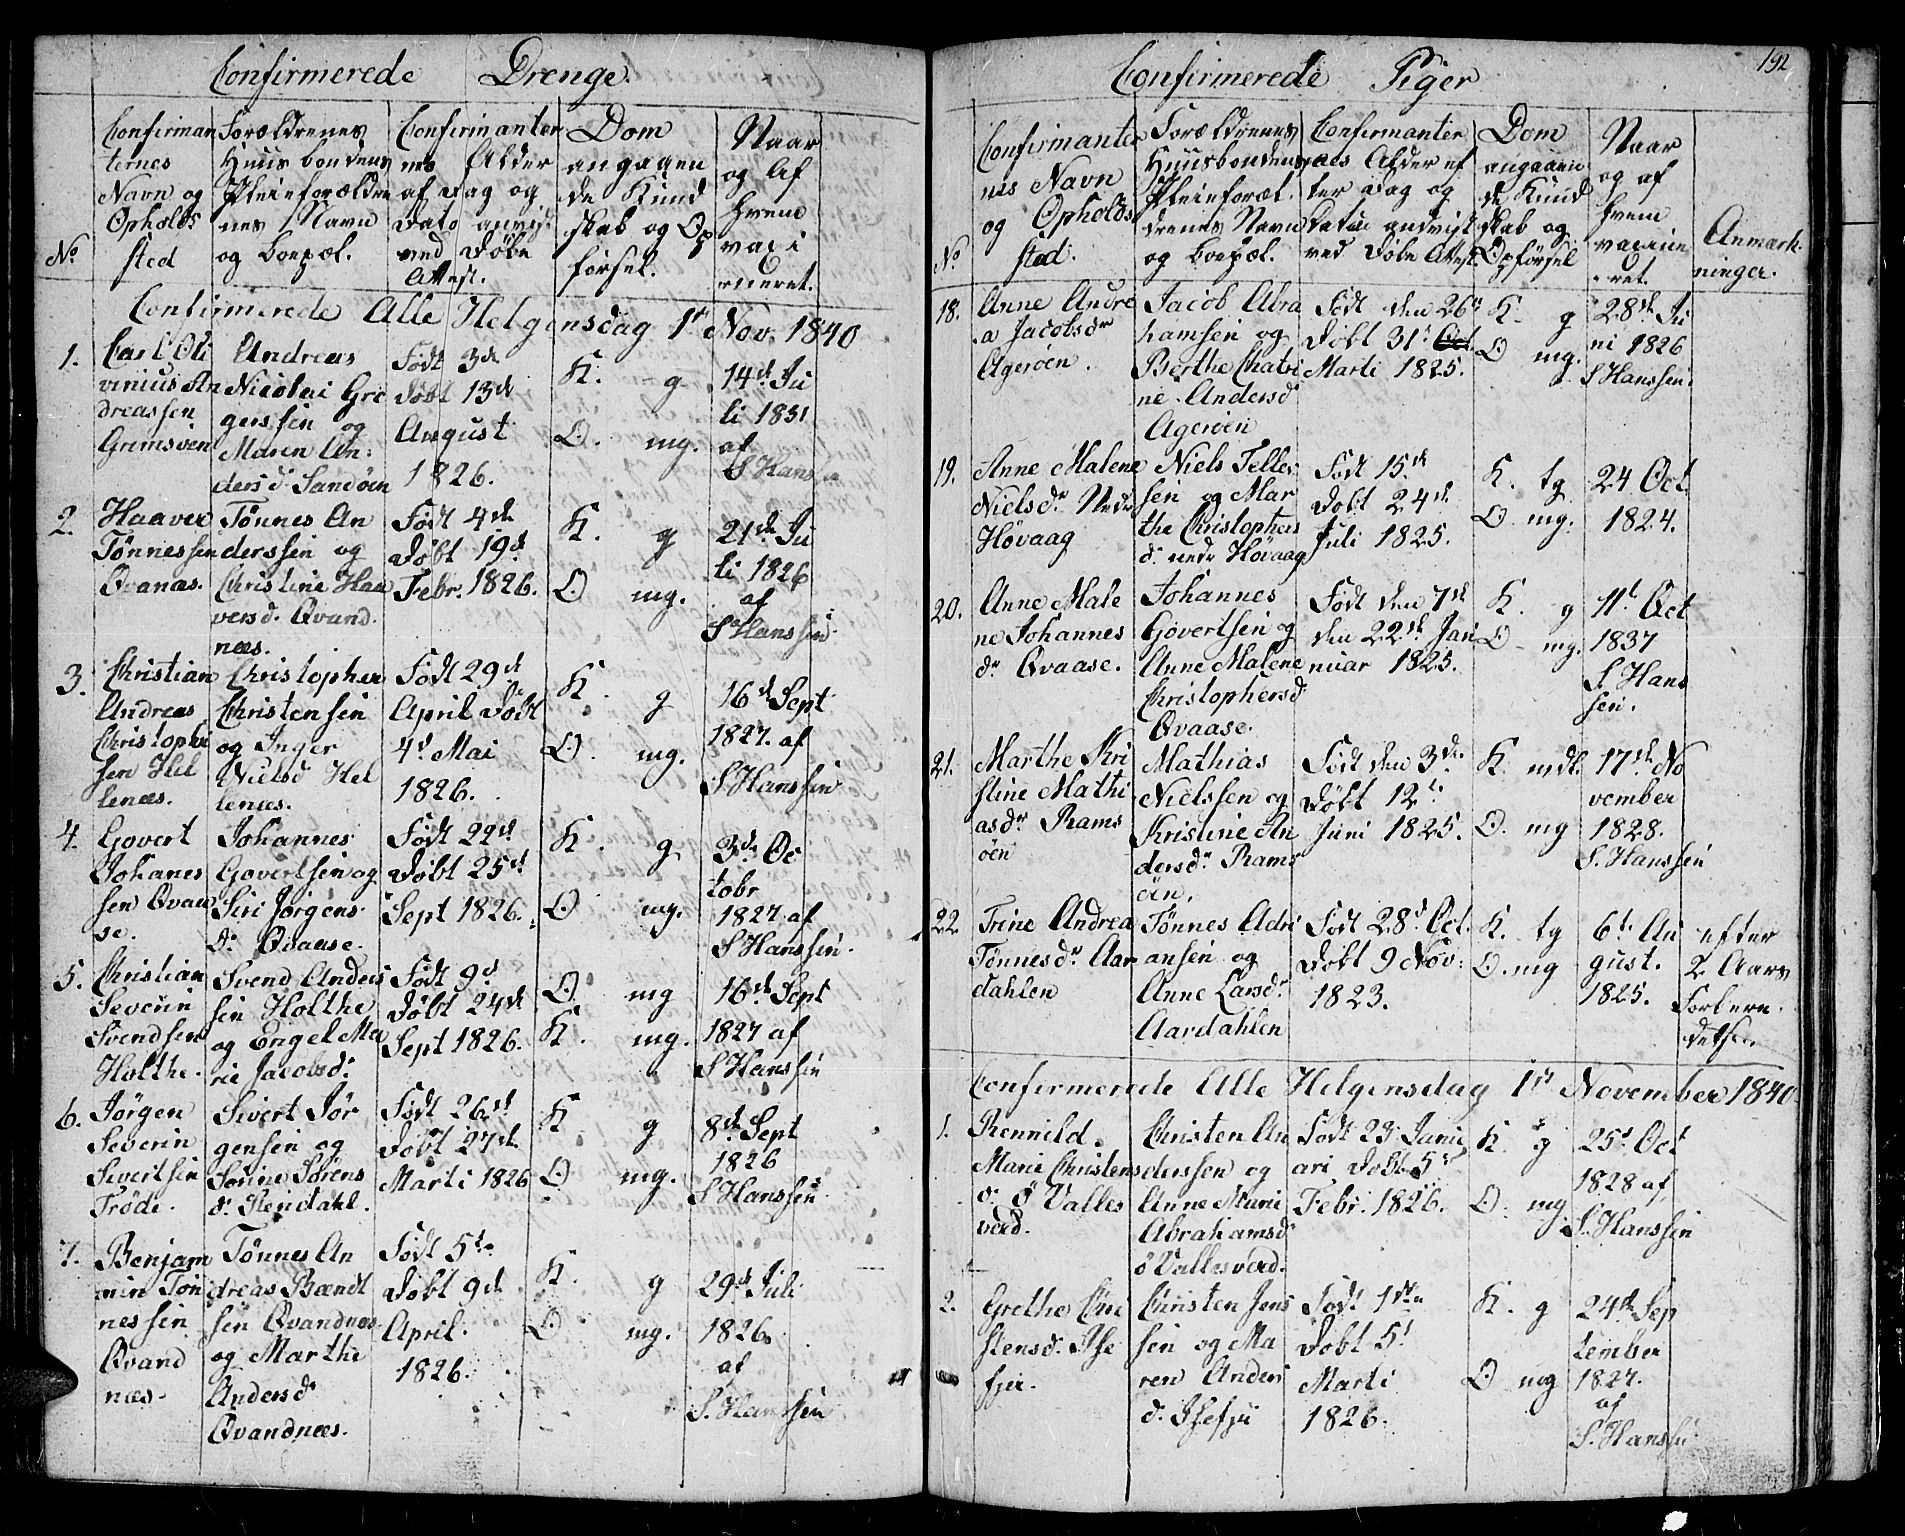 Confirmerede Drenge.
No
Confirman
ternes
Navn og
Opholds
sted
Forældrenes
Huusbondens
Pleieforældre
nes Navn
og boepæl.
Confirmanter
nes Alder
af Dag og
Dato anvist
ved Döbe
Attest.
Dom
angaaen
de Kund
skab og Op
försel.
Naar
og Af
hvem
vaci
neret.
Confirmerede Alle Helgensdag 1st Nov. 1840
1.
Carl Oli
vinius An
dreassen
Grimsven
Andreas
Nicolai Gre
gerssen og
Maren An:
dersd. Sandöen
Födt 3de
Döbt 13de
August
1826.
K. g
O. mg.
14de Ju
li 1831
af
S Hans
2.
Haaver
Tönnessen
Qvanæs.
Tönnes An
derssen og
Christine Haa
versd. Qvand
næs.
Födt 4de
Döbt 19d
Febr. 1826.
K. g
O mg.
21de Ju
li 1826
af
S Hanssen.
3.
Christian
Andreas
Christophe
sen Hel
lenæs.
Christopher
Christensen
og Inger
Nielsd Hel
lenæs.
Födt 29d
April Döbt
4d Mai
1826.
K. g
O. mg.
16d Sept
1827. af
S Hanssen
4.
Govert
Johanes
sen Qvaa
se.
Johannes
Govertsen og
Siri Jörgens
d. Qvaase.
Födt 22d
Döbt 25d
Sept 1826.
K. g
O mg.
3de Oc
tobr
1827 af
S Hanssen.
5.
Christian
Severin
Svendsen
Holthe.
Svend Anders
sen Holthe
og Engel Ma
rie Jacobsd.
Födt 9d
Döbt 24de
Sept 1826.
O. mg
K. mg.
16de Sept
1827 af
S Hanssen
6.
Jörgen
Severin
Sivertsen
Tröde.
Sivert Jör
gensen og
Sörine Sörens
d. Steindahl.
Födt 26d
Döbt 27de
Marti 1826
K. g
O. mg.
8de Sept
1826
S Hanssen.
7.
Benjam
nin Tön
nessen
Qvand
næs.
Tönnes An
dreas Bændt
sen Qvandnæs
og Marthe
Andersd
Qvandnæs.
Födt 5te
Döbt 9de
April.
1826.
K. g
O. mg.
29d Juli
1826.
af
S. Hanssen
192
Confirmerede Piger
No
Confirmanter
nes Navn
og Opholds
sted.
Forældrenes
Huusbondens
Pleieforæl.
drenes Navn
og boepæl.
Confirmanter
nes Alder ef
ter Dag og
Datum andvist
ved Döbe Attest.
Dom
angaaen
de Kund
skab og
Opförsel
Naar
og af
hvem
vaccine
ret.
Anmærk
ninger.
18.
Anne Andre
a Jacobsdr
Ageröen.
Jacob Abra
hamsen og
Berthe Chatri
ne Andersd
Ageröen
Födt den 26d
Döbt 31d Oct.
Marti 1825.
K. g
O mg.
28de Ju
ni 1826
S Hanssen.
19.
Anne Malene
Nielsdr Nedr
Hövaag
Niels Tellef
sen og Mar
the Christophers
d. nedr Hövaag
Födt 15de
Döbt 24de
Juli 1825.
K. tg
O. mg.
24 Oct.
1824.
20.
Anne Male
ne Johannes
dr Qvaase.
Johannes
Govertsen og
Anne Malene
Christophersd
Qvaase.
Födt den 7de
den 22de Jan
nuar 1825.
K. g
O mg.
11t Oct
1837
S. Hans
sen.
21.
Marthe Kri
stine Mathi
asdr Rams
öen
Mathias
Nielssen og
Kristine An
dersdr Rams
öen.
Födt den 3de
Döbt 12t
Juni 1825.
K. mdl.
O. mg
17de No
vember
1828.
S. Hanssen
22
Trine Andrea
Tönnesdr Aar
dahlen
Tönnes Adri
ansen og
Anne Larsdr
Aardahlen
Födt 28d Oct.
Döbt 9 Nov.
1823.
K. tg
O. mg
6t Au
gust.
1825.
efter
2 Aars
Forbere
delse.
Confirmerede Alle Helgensdag 1st November 1840.
1.
Rennild
Marie Christens
d. ö Valles
verd.
Christen An
derssen og
Anne Marie
Abrahamsd
ö Vallesverd.
Födt 23 Janu
ari Döbt 5d
Febr. 1826.
K. g
O. mg
25d Oct
1828 af
S. Hanssen
2.
Grethe Chri
stensd. Ise
fjer.
Christen Jens
sen og Ma
ren Anders
d. Isefjer
Födt 1ste
Döbt 5t
Marti
1826.
K. g
O mg
24de Sep
tember
1827.
af
S. Hanssen